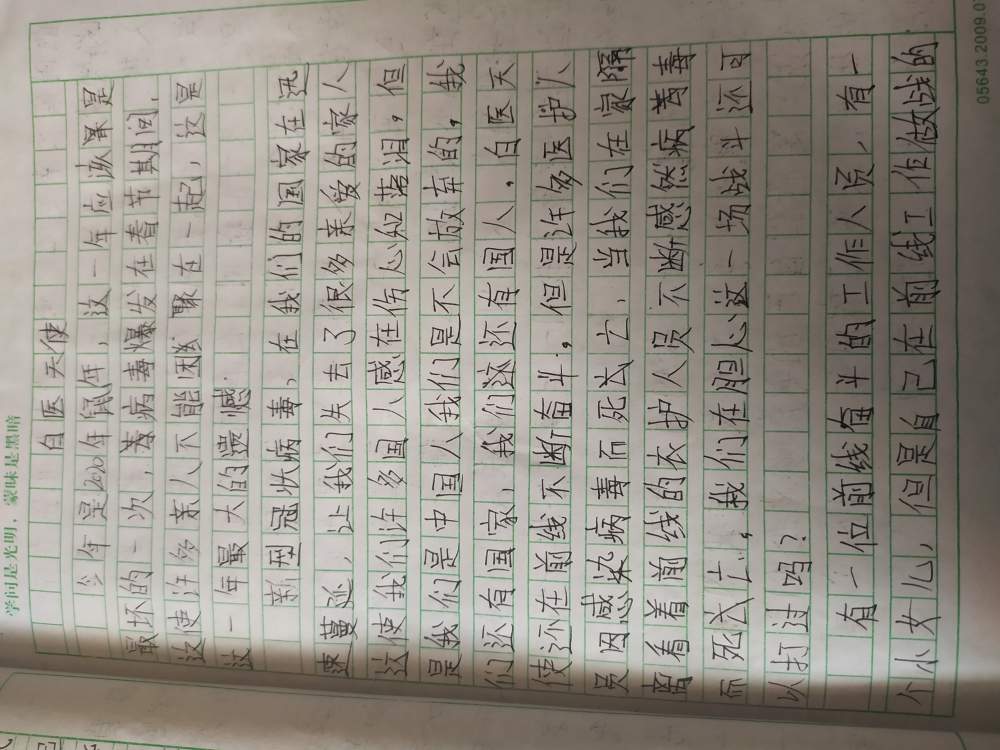 学问是光明，蒙昧是黑暗
白医天使
今年是2020年鼠年，这一年应该算是
最坏的一次，着病毒爆发在春节期间，
这使许多亲人不能团聚在一起，这是
这一年最大的遗憾
新型冠状病毒，在我们的国家在迅
速蔓延，让我们失去了很多亲爱的家人
这使我们许多国人感在伤心和落泪，但
是我们是中国人我们是不会放弃的，我
们还有国家，我们这还有国人，白医天
使还在前线不断奋斗，但是许多医护人
员因感染病毒而死亡，当我们在家隔
离看着前线的衣护人员不断感然病毒
而死亡，我们在胆心这一场战斗还可
以打过吗？
有一位前线奋斗的工作人员，有一
个小女儿，但是自己在前线工作做战的
05643.2009.07